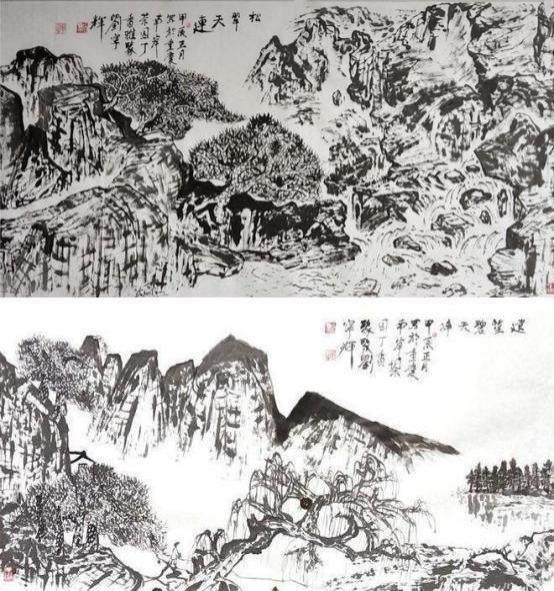 松翠天
甲辰正月
寫於重慶
南岸
茶园丁
香雅聚
劉寧
輝
碧天
甲辰正月
写於重慶
南岸茶
园丁香
雅聚劉
寧輝